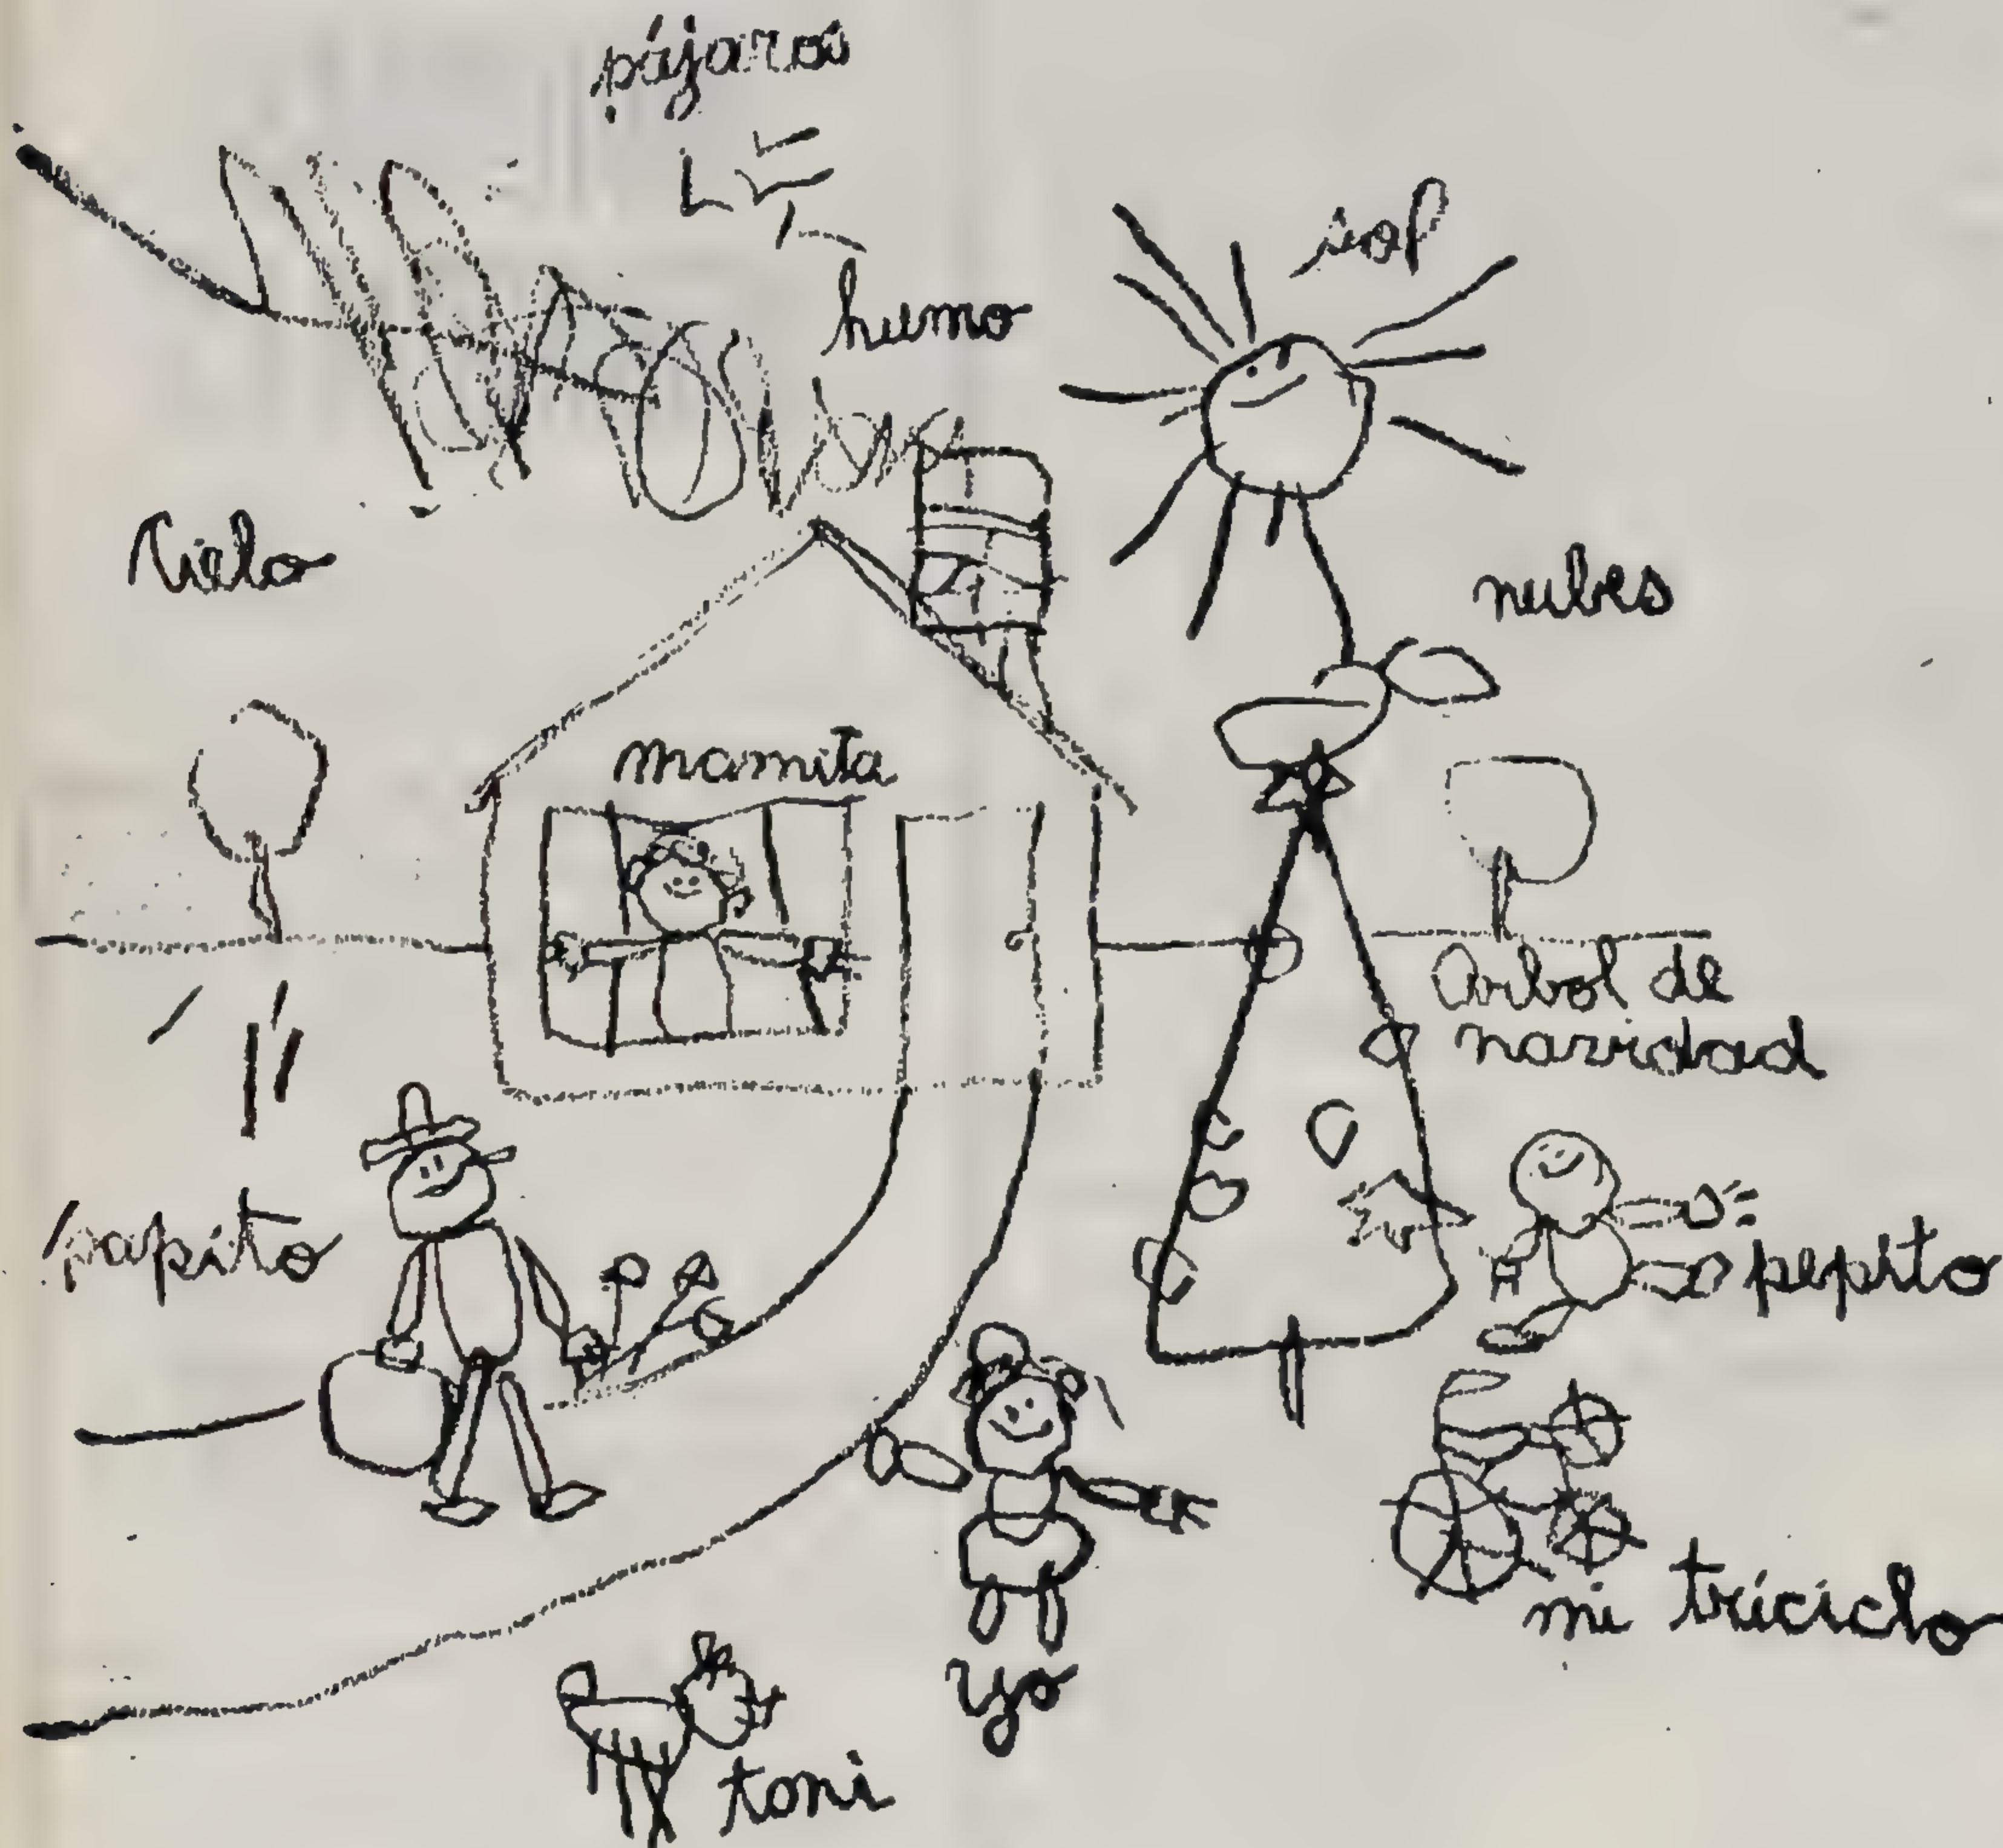 pájaros
sol
humo
Cielo
nubes
mamita
Arbol de
navidad
papito
pepito
mi triciclo
yo
toni